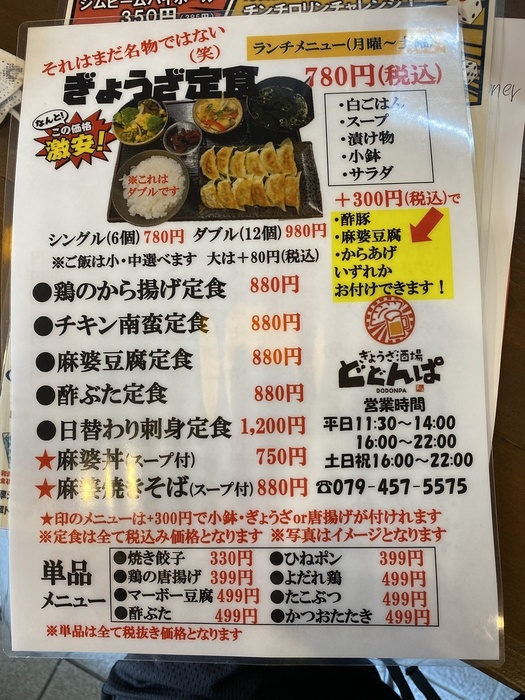 ジムビームハイボール
350円(385円)
チンチロリンチャレンジ
それはまだ名物ではない
(笑)
ランチメニュー(月曜～
ぎょうざ定食 780円(税込)
なんと!
この価格
激安!
※これは
ダブルです
・白ごはん
・スープ
・漬け物
・小鉢
・サラダ
+300円(税込)で
・酢豚
・麻婆豆腐
・からあげ
いずれか
お付けできます!
シングル(6個)780円 ダブル(12個)980円
※ご飯は小・中選べます 大は+80円(税込)
●鶏のから揚げ定食 880円
●チキン南蛮定食 880円
●麻婆豆腐定食 880円
●酢ぶた定食 880円
●日替わり刺身定食 1,200円
★麻婆丼(スープ付) 750円
★麻婆焼きそば(スープ付)880円
ぎょうざ酒場
どどんぱ
DODONPA
営業時間
平日11:30～14:00
16:00～22:00
土日祝16:00～22:00
☎079-457-5575
★印のメニューは+300円で小鉢・ぎょうざor唐揚げが付けれます
※定食は全て税込み価格となります ※写真はイメージとなります
単品
メニュー
●焼き餃子 330円
●鶏の唐揚げ 399円
●マーボー豆腐 499円
●酢ぶた 499円
●ひねポン 399円
●よだれ鶏 499円
●たこぶつ 499円
●かつおたたき 499円
※単品は全て税抜き価格となります